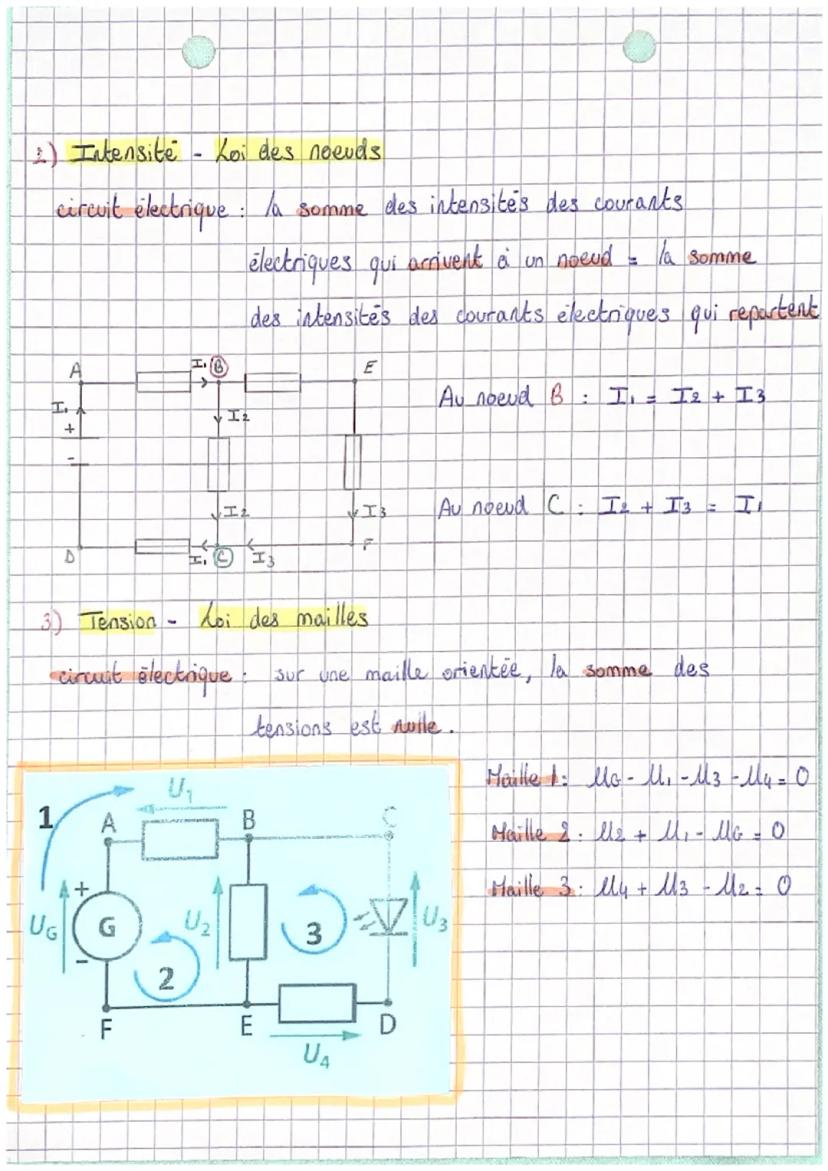 2) Intensité - Loi des noeuds
circuit électrique : la somme des intensités des courants
électriques qui arrivent à un noeud = la somme
des intensités des courants électriques qui repartent
A I1 B E
I1 + - I2
Au noeud B : I1 = I2 + I3
I2 I3
Au noeud C : I2 + I3 = I1
D I1 C I3 F
3) Tension - Loi des mailles
circuit électrique : sur une maille orientée, la somme des
tensions est nulle.
Maille 1 : UG - U1 - U3 - U4 = 0
Maille 2 : U2 + U1 - UG = 0
Maille 3 : U4 + U3 - U2 = 0
1 U1
A B C
+ G - UG U2 3 U3
2
F E D
U4